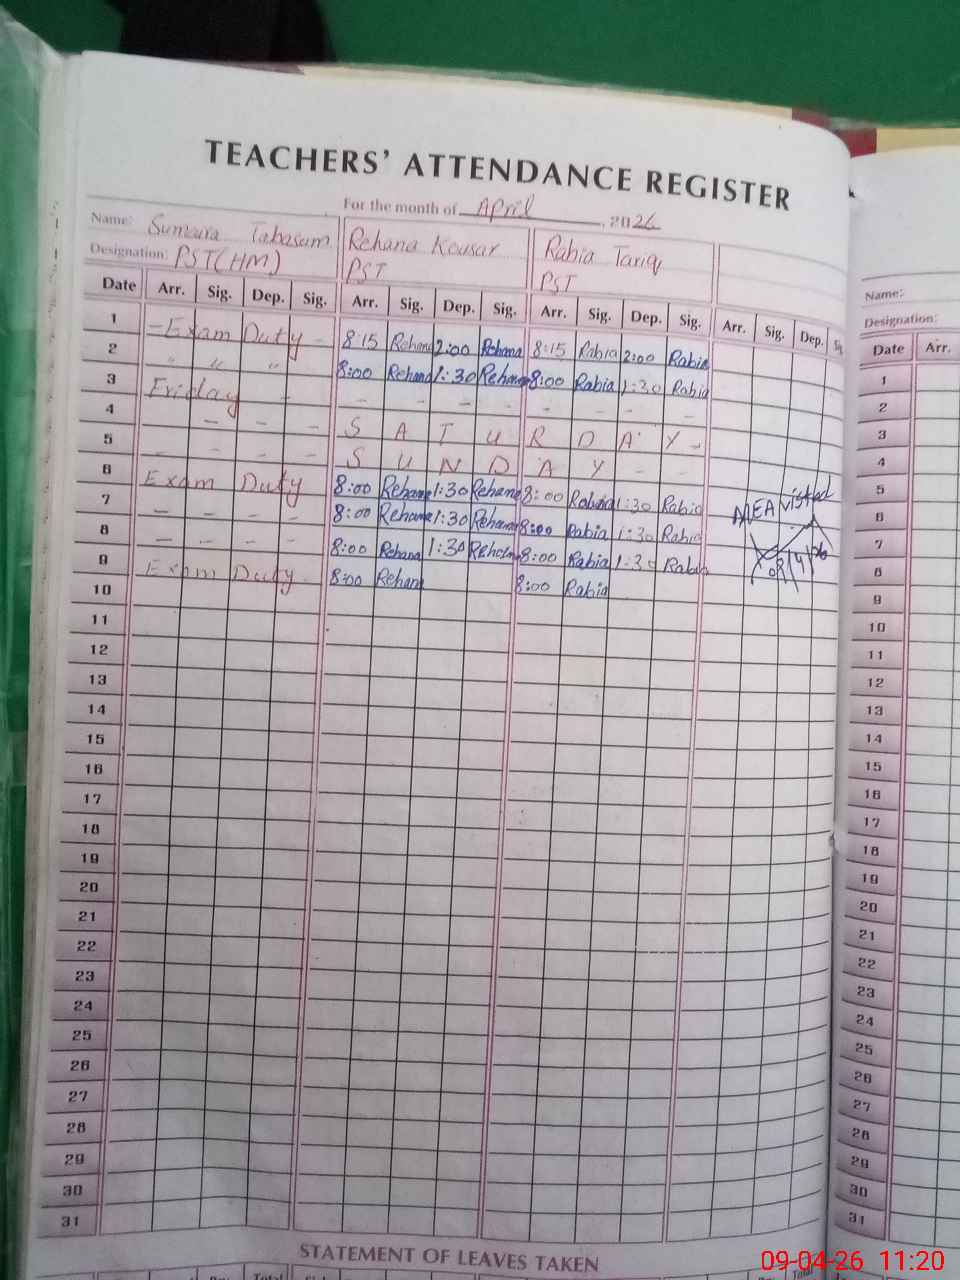 TEACHERS' ATTENDANCE REGISTER
For the month of April, 2026
Name: Sumaira Tabasum Rehana Kousar Rabia Tariq
Designation: PST(HM) PST PST
Date Arr. Sig. Dep. Sig. Arr. Sig. Dep. Sig. Arr. Sig. Dep. Sig. Arr. Sig. Dep.
1 - Exam Duty - 8:15 Rehana 2:00 Rehana 8:15 Rabia 2:00 Rabia
2 " " " 8:00 Rehana 1:30 Rehana 8:00 Rabia 1:30 Rabia
3 Friday - - - - - - - - -
4 - - - S A T U R D A Y -
5 - - - - S U N D A Y - -
6 Exam Duty 8:00 Rehana 1:30 Rehana 8:00 Rabia 1:30 Rabia
7 - - - 8:00 Rehana 1:30 Rehana 8:00 Rabia 1:30 Rabia MEA visted
8 - - - 8:00 Rehana 1:30 Rehana 8:00 Rabia 1:30 Rabia 08/4/26
9 Exam Duty - 8:00 Rehana 8:00 Rabia
10
11
12
13
14
15
16
17
18
19
20
21
22
23
24
25
26
27
28
29
30
31
STATEMENT OF LEAVES TAKEN
Total
Name:
Designation:
Date Arr.
1
2
3
4
5
6
7
8
9
10
11
12
13
14
15
16
17
18
19
20
21
22
23
24
25
26
27
28
29
30
31
09-04-26 11:20